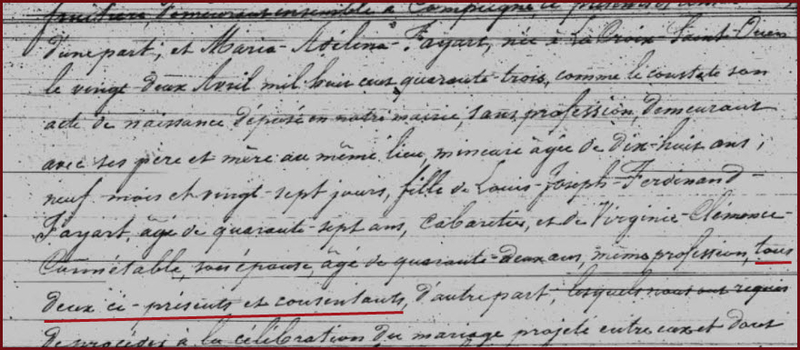 fruitière, demeurant ensemble à Compiègne, ci présents et
d'une part, et Maria-Avelina-Fayart, née à La Croix-Saint-Ouen
le vingt-deux Avril mil huit cent quarante-trois, comme le constate son
acte de naissance déposé en notre mairie, sans profession, demeurant
avec ses père et mère au même lieu, mineure âgée de dix-huit ans,
neuf mois et vingt-sept jours, fille de Louis-Joseph-Ferdinand-
Fayart, âgé de quarante-sept ans, Cabaretier, et de Virginie-Clémence-
Connétable, son épouse, âgé de quarante-deux ans, même profession, tous
deux ci-présents et consentants, d'autre part, lesquels nous ont requis
de procéder à la célébration du mariage projeté entre eux et dont